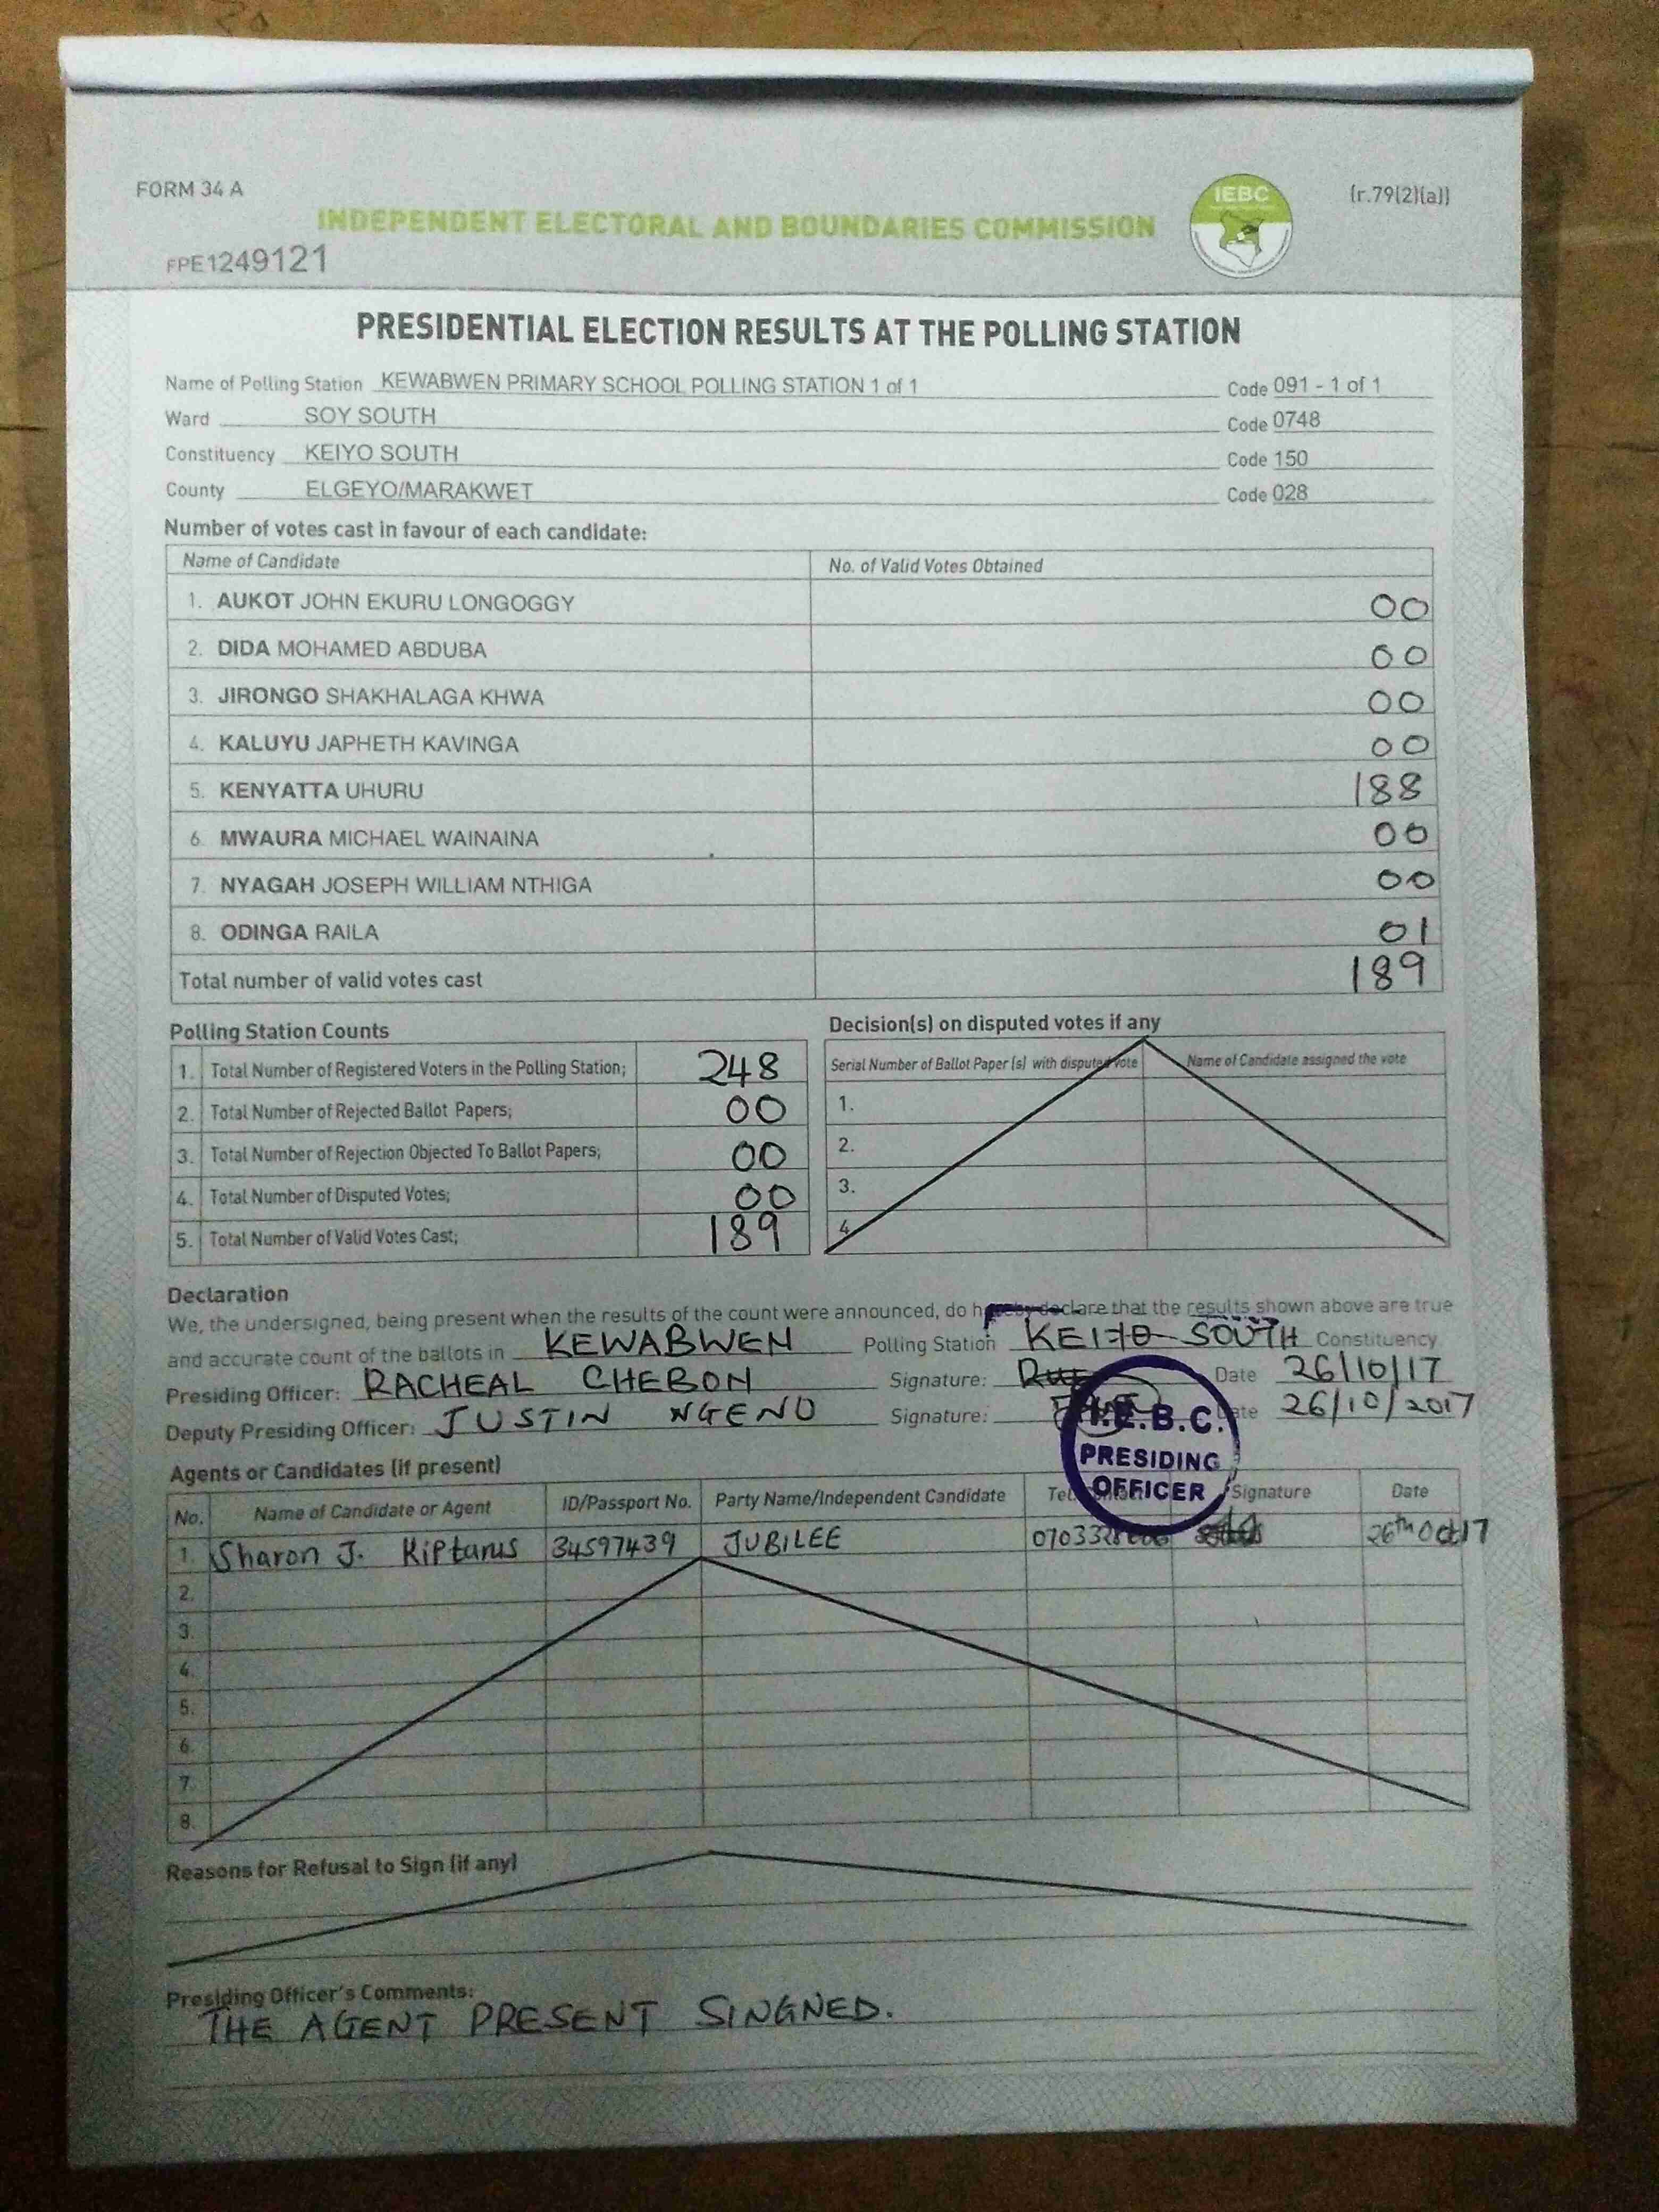 FORM 34 A
IEBC
(r.79(2)(a))
INDEPENDENT ELECTORAL AND BOUNDARIES COMMISSION
FPE1249121
PRESIDENTIAL ELECTION RESULTS AT THE POLLING STATION
Name of Polling Station KEWABWEN PRIMARY SCHOOL POLLING STATION 1 of 1 Code 091 - 1 of 1
Ward SOY SOUTH Code 0748
Constituency KEIYO SOUTH Code 150
County ELGEYO/MARAKWET Code 028
Number of votes cast in favour of each candidate:
Name of Candidate No. of Valid Votes Obtained
1. AUKOT JOHN EKURU LONGOGGY 00
2. DIDA MOHAMED ABDUBA 00
3. JIRONGO SHAKHALAGA KHWA 00
4. KALUYU JAPHETH KAVINGA 00
5. KENYATTA UHURU 188
6. MWAURA MICHAEL WAINAINA 00
7. NYAGAH JOSEPH WILLIAM NTHIGA 00
8. ODINGA RAILA 01
Total number of valid votes cast 189
Polling Station Counts
1. Total Number of Registered Voters in the Polling Station; 248
2. Total Number of Rejected Ballot Papers; 00
3. Total Number of Rejection Objected To Ballot Papers; 00
4. Total Number of Disputed Votes; 00
5. Total Number of Valid Votes Cast; 189
Decision(s) on disputed votes if any
Serial Number of Ballot Paper (s) with disputed vote Name of Candidate assigned the vote
1.
2.
3.
4.
Declaration
We, the undersigned, being present when the results of the count were announced, do hereby declare that the results shown above are true
and accurate count of the ballots in KEWABWEN Polling Station KEIYO SOUTH Constituency
Presiding Officer: RACHEAL CHEBON Signature: Date 26/10/17
Deputy Presiding Officer: JUSTIN NGENO Signature: Date 26/10/2017
I.E.B.C.
PRESIDING
OFFICER
Agents or Candidates (if present)
No. Name of Candidate or Agent ID/Passport No. Party Name/Independent Candidate Tel. Signature Date
1. Sharon J. Kiptarus 34597439 JUBILEE 26th Oct 17
2.
3.
4.
5.
6.
7.
8.
Reasons for Refusal to Sign (if any)
Presiding Officer's Comments:
THE AGENT PRESENT SINGNED.